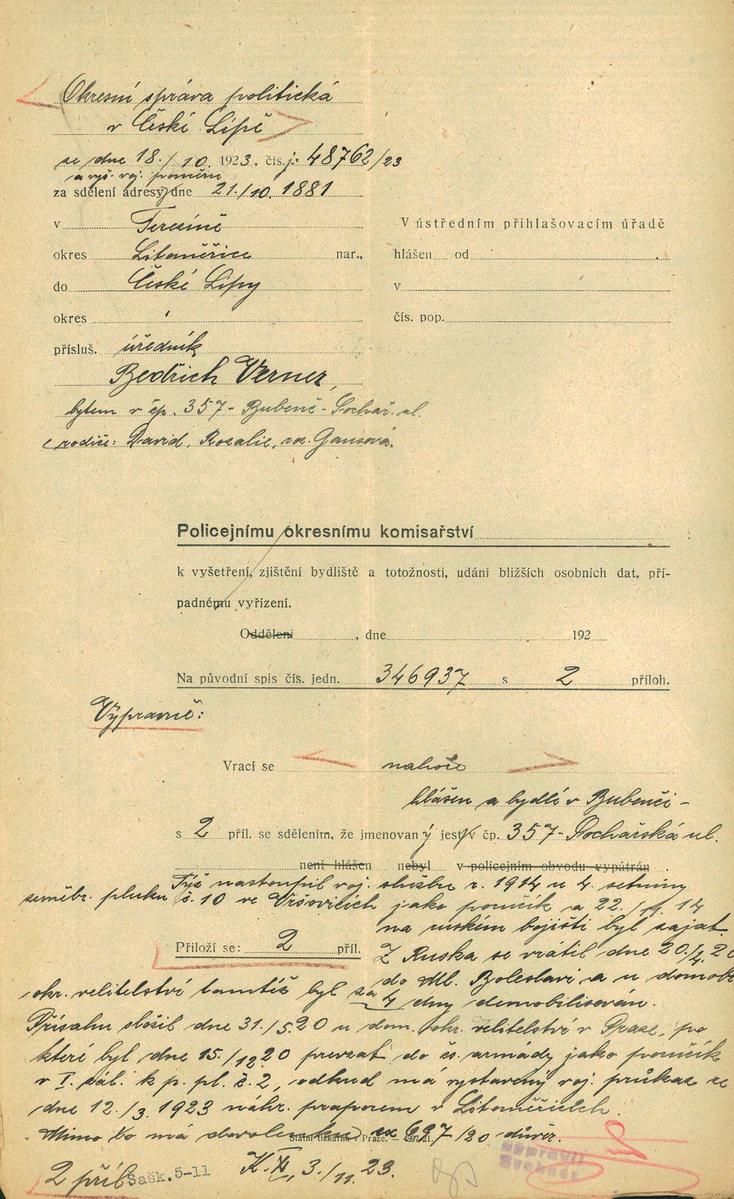 Okresní správa politická
v České Lípě
ze dne 18./10. 1923, čís. j. 48762/23
a vyš. voj. poměru
za sdělení adresy dne 21./10. 1881
v Terezíně
okres Litoměřice nar.,
do České Lípy
okres
přísluš. úředník
Bedřich Verner,
bytem v čp. 357 - Bubenč - Sochař. ul.
rodiče: David, Rosalie, roz. Gansová.
V ústředním přihlašovacím úřadě
hlášen od
v
čís. pop.
Policejnímu okresnímu komisařství
k vyšetření, zjištění bydliště a totožnosti, udání bližších osobních dat, pří-
padnému vyřízení.
Oddělení , dne 192
Na původní spis čís. jedn. 346937 s 2 příloh.
Výpravně:
Vrací se nahoře
hlášen a bydlí v Bubenči -
s 2 příl. se sdělením, že jmenovaný jest v čp. 357 - Sochařská ul.
není hlášen nebyl v policejním obvodu vypátrán
Týž nastoupil voj. službu r. 1914 u 4. setniny
zeměbr. pluku č. 10 ve Vršovicích jako poručík a 22./11. 14
na ruském bojišti byl zajat.
Přiloží se: 2 příl. Z Ruska se vrátil dne 20./4. 20
do Ml. Boleslavi a u domobr.
okr. velitelství tamtéž byl za 4 dny demobilisován.
Přísahu složil dne 31./5. 20 u dom. okr. velitelství v Praze, po
které byl dne 15./12. 20 převzat do čs. armády jako poručík
v I. zál. k p. pl. č. 2, odkud má vystavený voj. průkaz ze
dne 12./3. 1923 náhr. praporem v Litoměřicích.
Mimo to má 697/20 důvěr.
Státní tiskárna v Praze.
2 příl. Sašk. 5-11 3./11. 23.
Vypravil
Svoboda